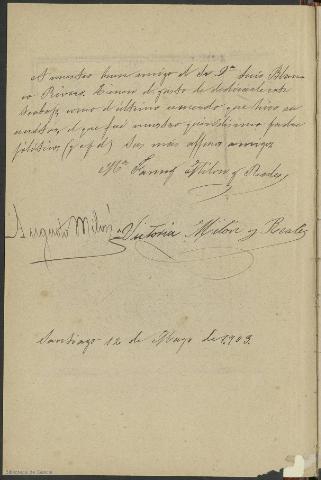 A nuestro buen amigo el Sr Dn Luis Blan-
co Rivero. Tienen el gusto de dedicarle este
trabajo, como el último recuerdo que hizo su
autor, el que fué nuestro queridísimo padre
político (q e p d) Sus más affmos amigos
Mª Fanny Milón y Reales
Augusto Milón Victoria Milón y Reales
Santiago 12 de Mayo de 1903.
Biblioteca de Galicia